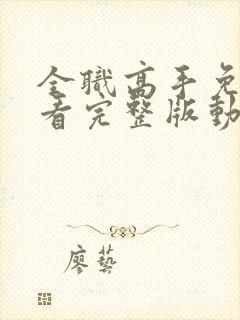 全職高手免
看完整版動
廖藝